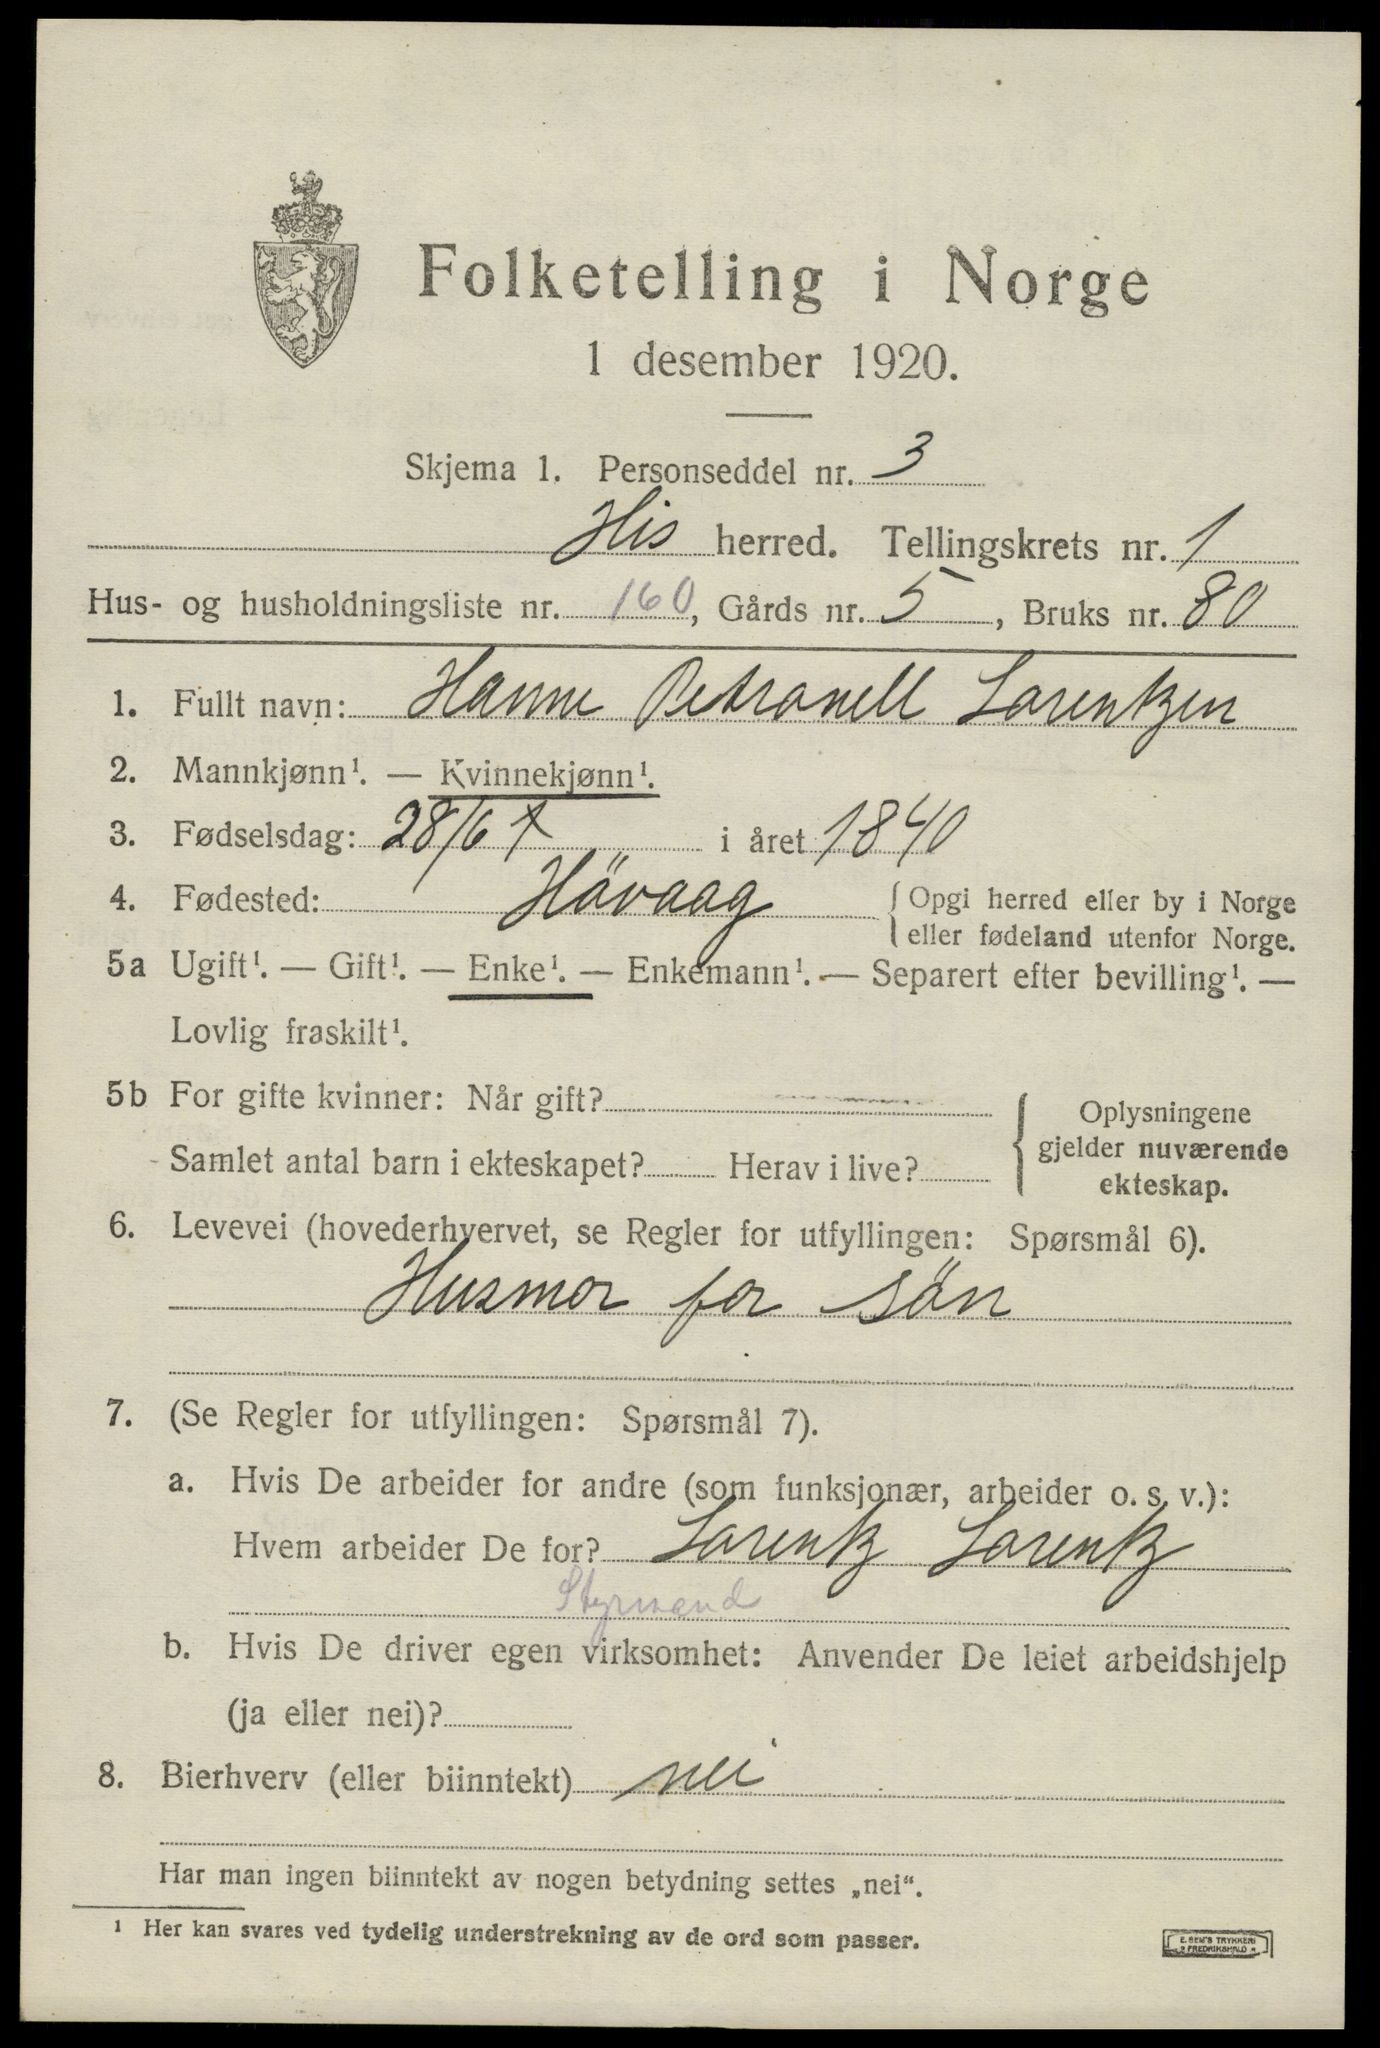 Folketelling i Norge
1 desember 1920.
Skjema 1. Personseddel nr. 3
His herred. Tellingskrets nr. 1
Hus- og husholdningsliste nr. 160, Gårds nr. 5, Bruks nr. 80
1. Fullt navn: Hanne Petronell Lorentzen
2. Mannkjønn¹. — Kvinnekjønn¹.
3. Fødselsdag: 28/6 i året 1840
4. Fødested: Hövaag {Opgi herred eller by i Norge
eller fødeland utenfor Norge.
5a Ugift¹. — Gift¹. — Enke¹. — Enkemann¹. — Separert efter bevilling¹. —
Lovlig fraskilt¹.
5b For gifte kvinner: Når gift?
Samlet antal barn i ekteskapet? Herav i live?
{Oplysningene
gjelder nuværende
ekteskap.
6. Levevei (hovederhvervet, se Regler for utfyllingen: Spørsmål 6).
Husmor for sön
7. (Se Regler for utfyllingen: Spørsmål 7).
a. Hvis De arbeider for andre (som funksjonær, arbeider o. s. v.):
Hvem arbeider De for? Lorentz Lorentz
Styrmand
b. Hvis De driver egen virksomhet: Anvender De leiet arbeidshjelp
(ja eller nei)?
8. Bierhverv (eller biinntekt) nei
Har man ingen biinntekt av nogen betydning settes „nei“.
¹ Her kan svares ved tydelig understrekning av de ord som passer.
E. SEM'S TRYKKERI
FREDRIKSHALD